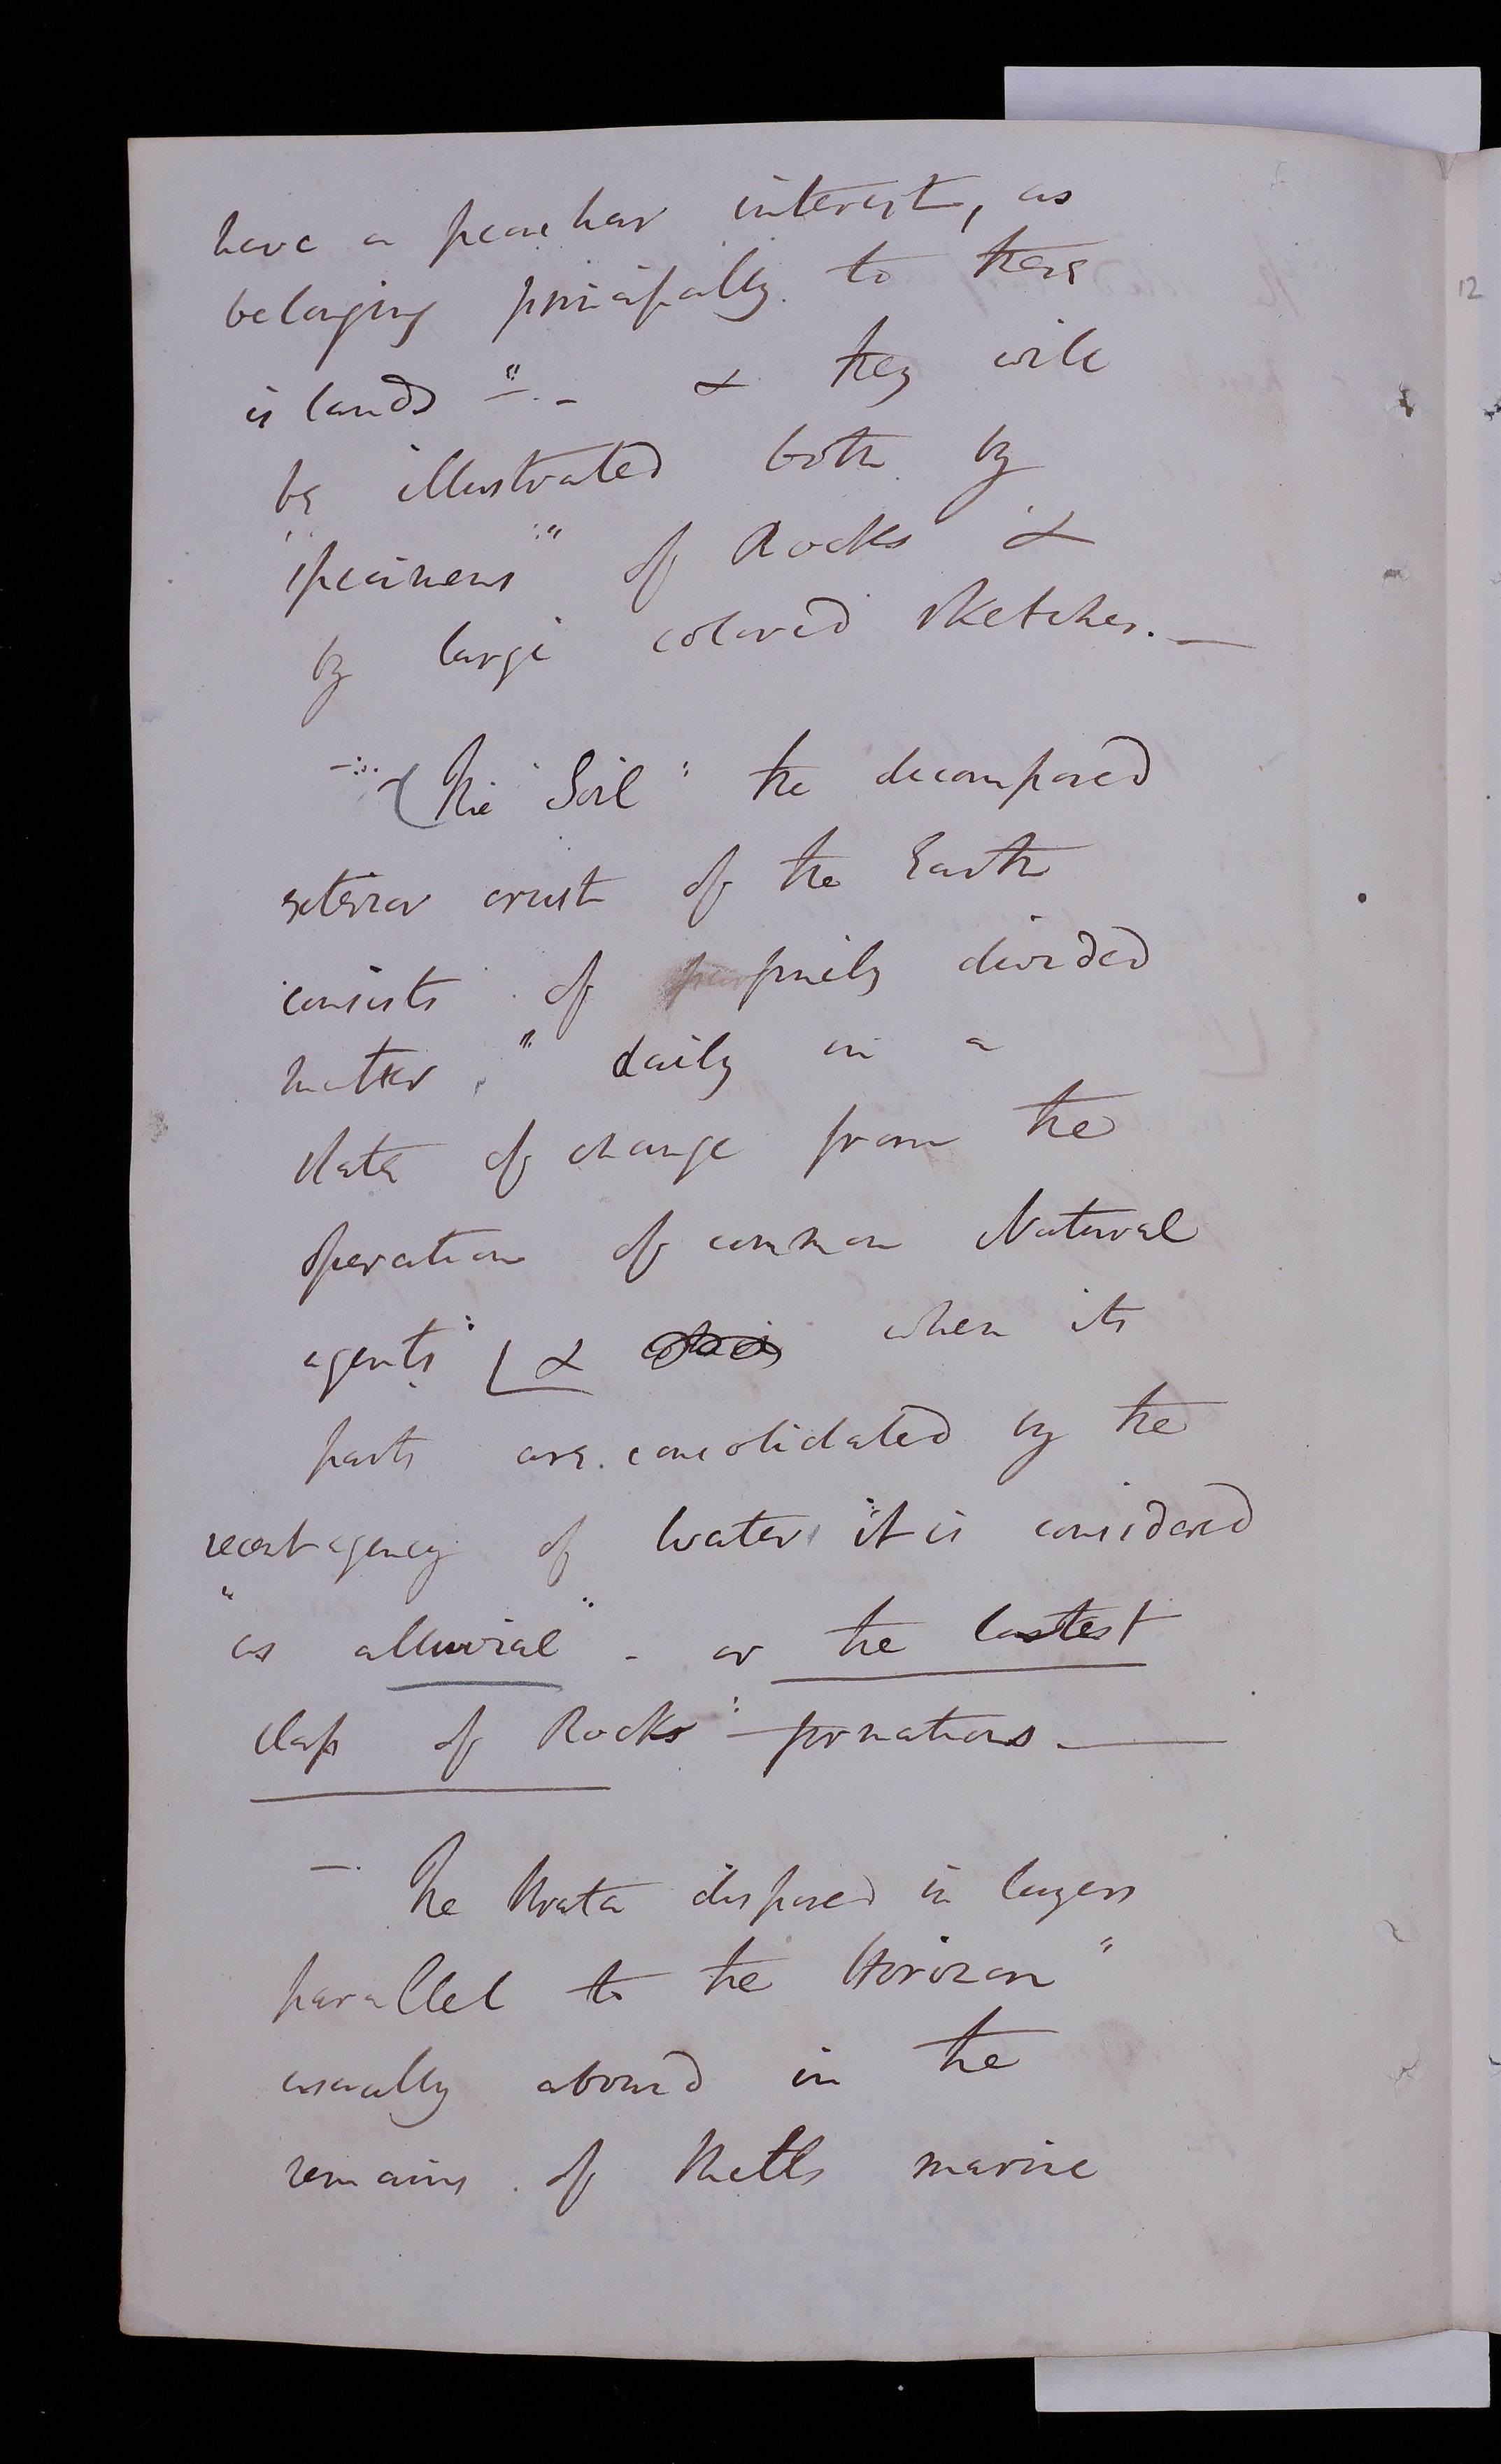 have a peculiar interest, as
belonging principally to these
islands " - & they will
be illustrated both by
"specimens" of Rocks &
by large colored sketches. —
— The Soil " the decomposed
exterior crust of the Earth
consists of finely divided
matter, " daily in a
state of change from the
operation of common Natural
agents " [& when its
parts are consolidated by the
recent agency of water it is considered
"as alluvial" - or the lastest
class of Rocks" - formations. —
— The strata disposed in layers
parallel to the Horizon "
usually abound in the
remains of shells marine
12